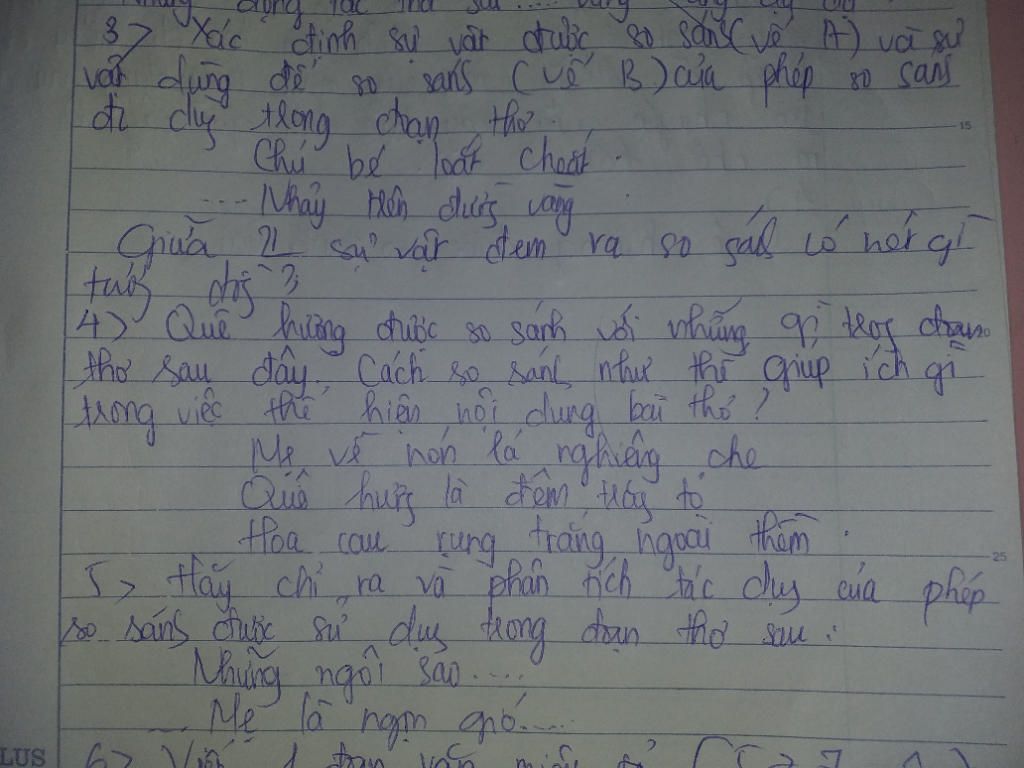 động tác
3> Xác định sự vật được so sánh (vế A) và sự
vật dùng để so sánh (vế B) của phép so sánh
đc dụng trong đoạn thơ.
15
Chú bé loắt choắt.
.... Nhảy trên đường vàng
Giữa 2 sự vật đem ra so sánh có nét gì
tương đồng?
4> Quê hương được so sánh với những gì trong đoạn
thơ sau đây. Cách so sánh như thế giúp ích gì
trong việc thể hiện nội dung bài thơ?
Mẹ về nón lá nghiêng che
Quê hương là đêm trăng tỏ
Hoa cau rụng trắng ngoài thềm.
25
5> Hãy chỉ ra và phân tích tác dụng của phép
so sánh được sử dụng trong đoạn thơ sau:
Những ngôi sao....
Mẹ là ngọn gió....
LUS
6> Viết 1 đoạn văn miêu tả (5